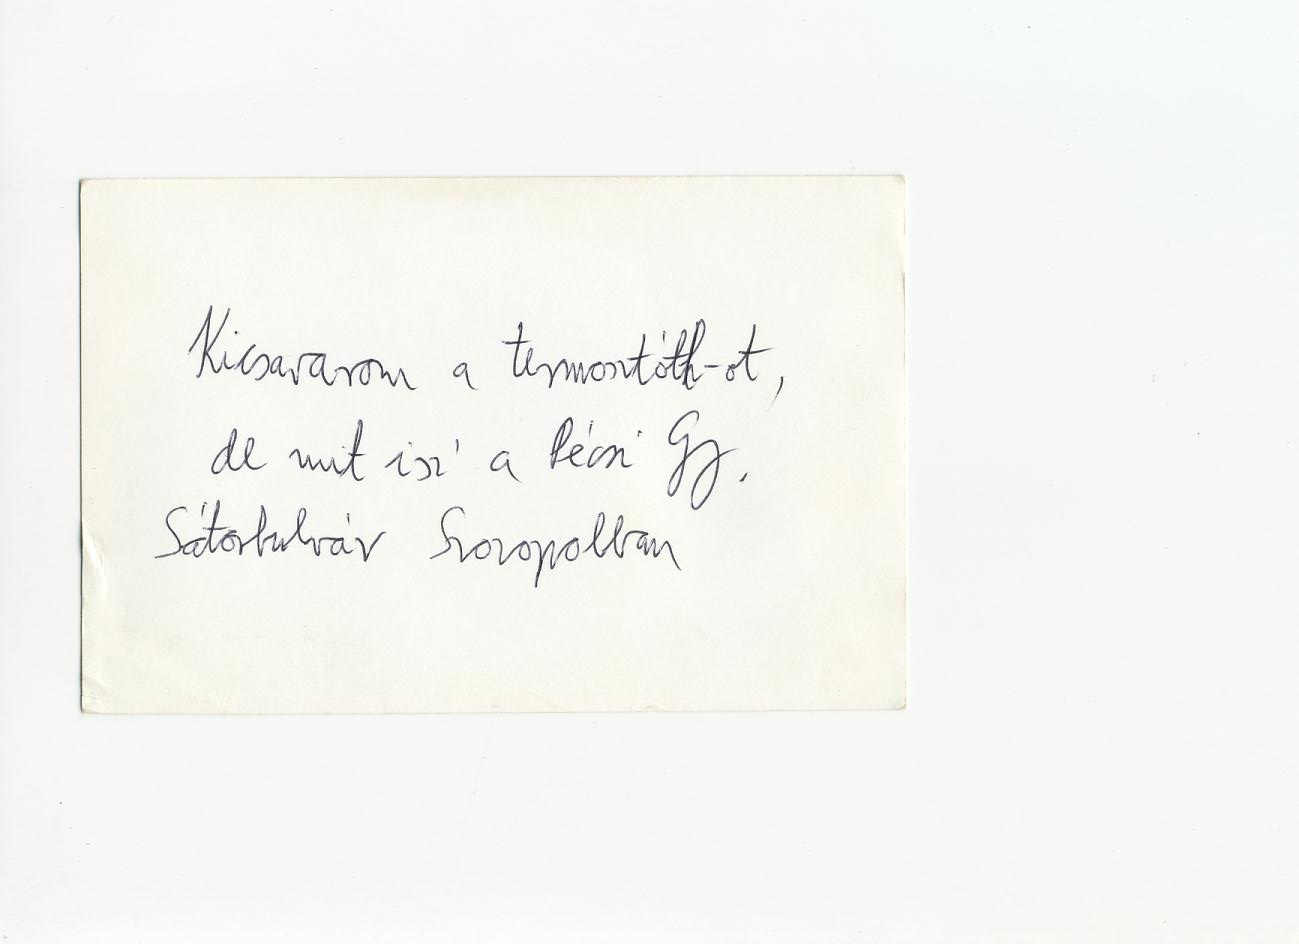 Kicsavarom a termosztóth-ot,
de mit iszi a Pécsi Gy.
Sátorbulvár Szozopolban